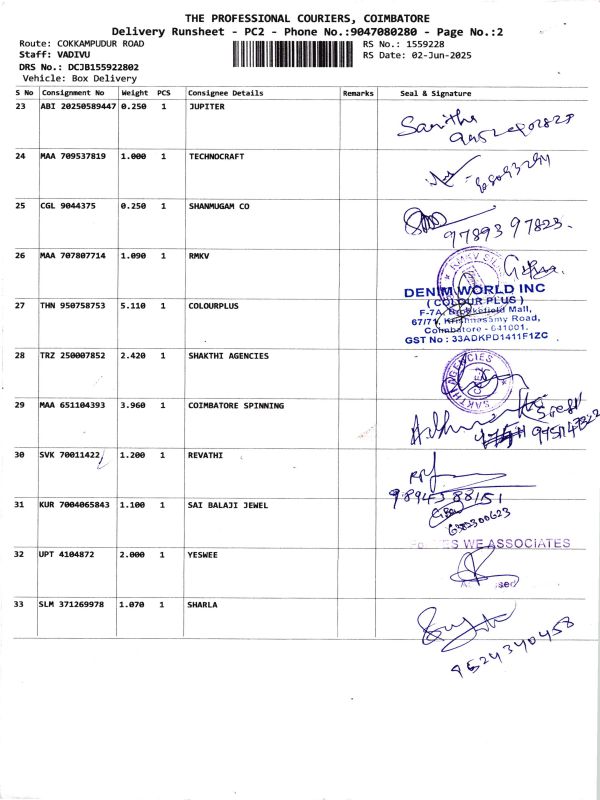 THE PROFESSIONAL COURIERS, COIMBATORE
Delivery Runsheet - PC2 - Phone No.:9047080280 - Page No.:2
Route: COKKAMPUDUR ROAD
RS No.: 1559228
Staff: VADIVU
RS Date: 02-Jun-2025
DRS No.: DCJB155922802
Vehicle: Box Delivery
S No Consignment No Weight PCS Consignee Details Remarks Seal & Signature
23 ABI 20250589447 0.250 1 JUPITER
24 MAA 709537819 1.000 1 TECHNOCRAFT
25 CGL 9044375 0.250 1 SHANMUGAM CO
97893 97823
26 MAA 707807714 1.090 1 RMKV
DENIM WORLD INC
( COLOUR PLUS )
27 THN 950758753 5.110 1 COLOURPLUS
F-7A, Brookefield Mall,
67/71, Krishnasamy Road,
Coimbatore - 641001.
GST No : 33ADKPD1411F1ZC
28 TRZ 250007852 2.420 1 SHAKTHI AGENCIES
SAKTHI AGENCIES
29 MAA 651104393 3.960 1 COIMBATORE SPINNING
30 SVK 70011422 1.200 1 REVATHI
9894388151
31 KUR 7004065843 1.100 1 SAI BALAJI JEWEL
6382300623
WE ASSOCIATES
32 UPT 4104872 2.000 1 YESWEE
33 SLM 371269978 1.070 1 SHARLA
9524340458